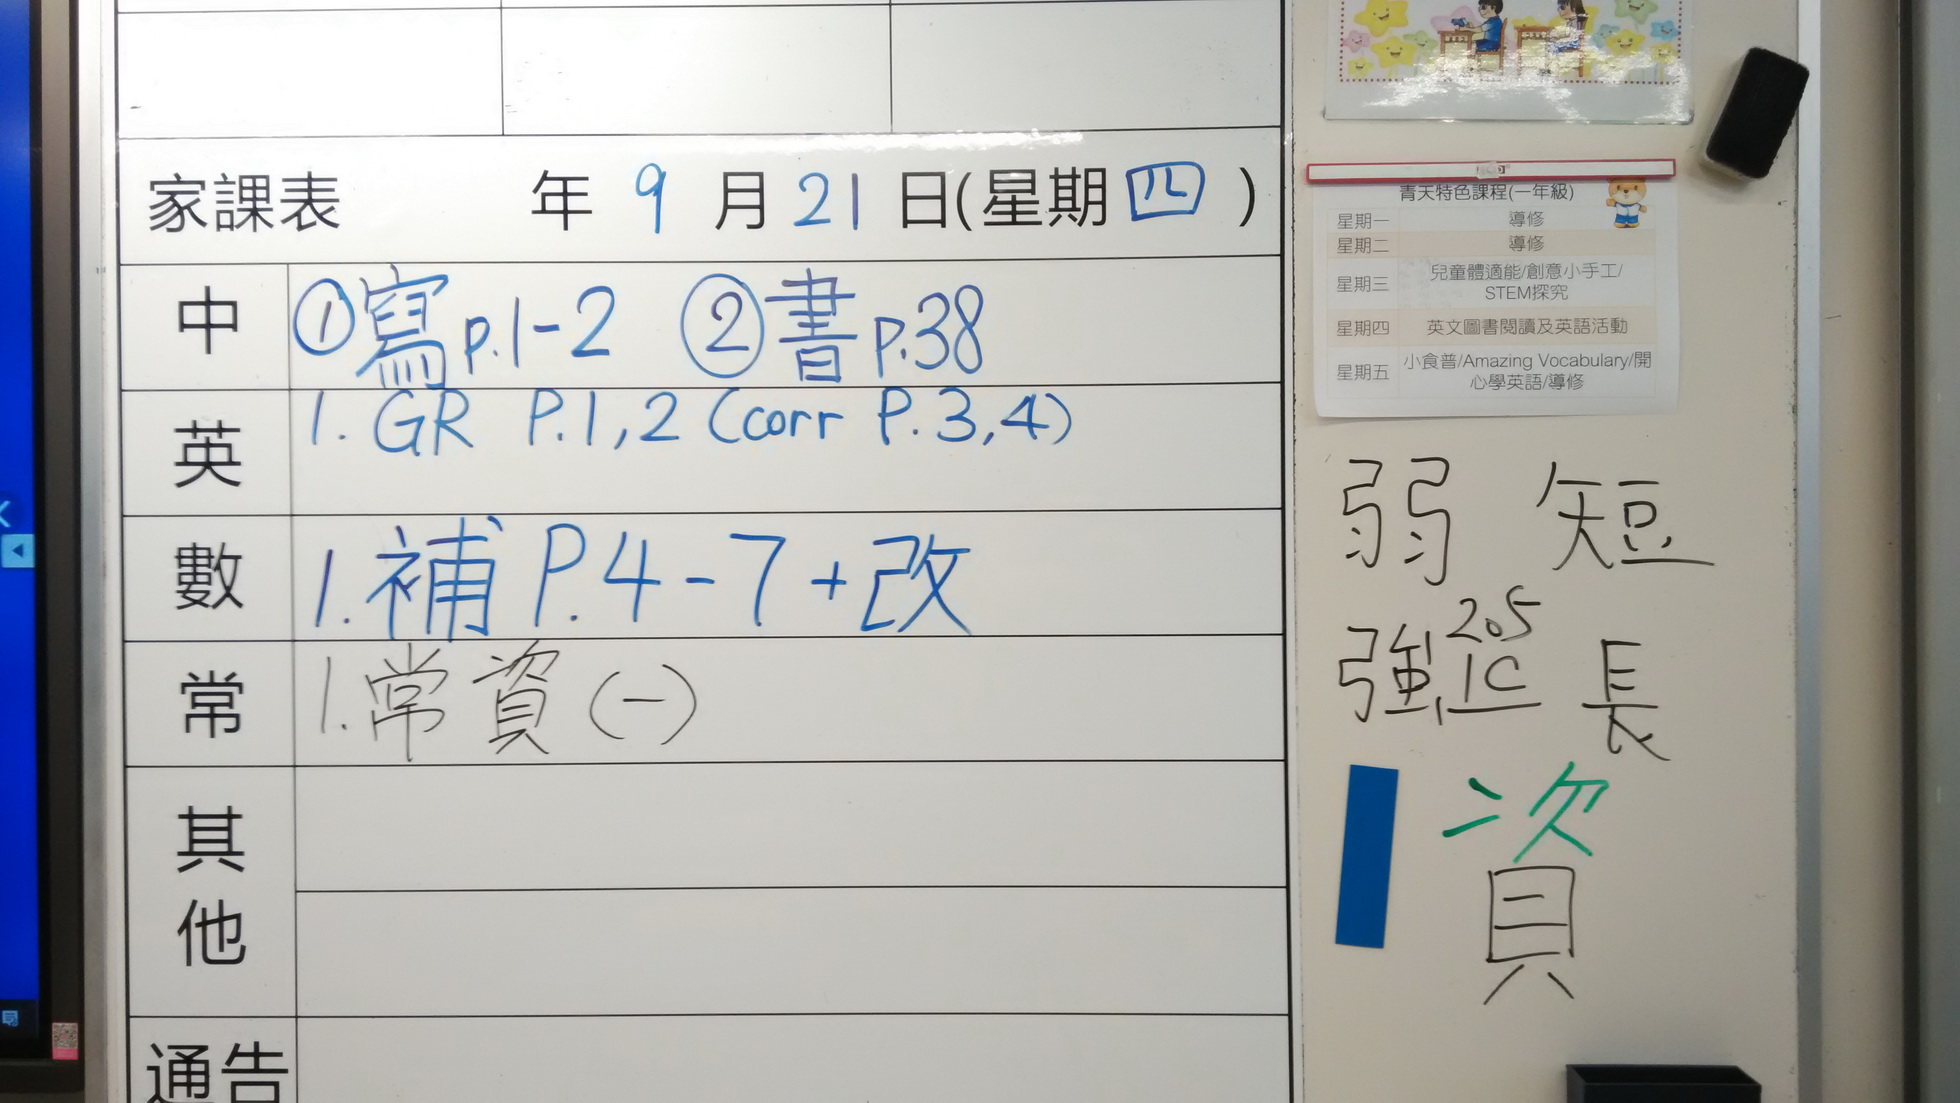 家課表 年 9 月 21 日(星期 四 )
中 ①寫p.1-2 ②書p.38
英 1. GR P.1,2 (corr P.3,4)
數 1.補 P.4-7+改
常 1.常資(一)
其他
通告
青天特色課程(一年級)
星期一 導修
星期二 導修
星期三 兒童體適能/創意小手工/
STEM探究
星期四 英文圖書閱讀及英語活動
星期五 小食普/Amazing Vocabulary/開
心學英語/導修
弱 短
強 長
205
1C
資